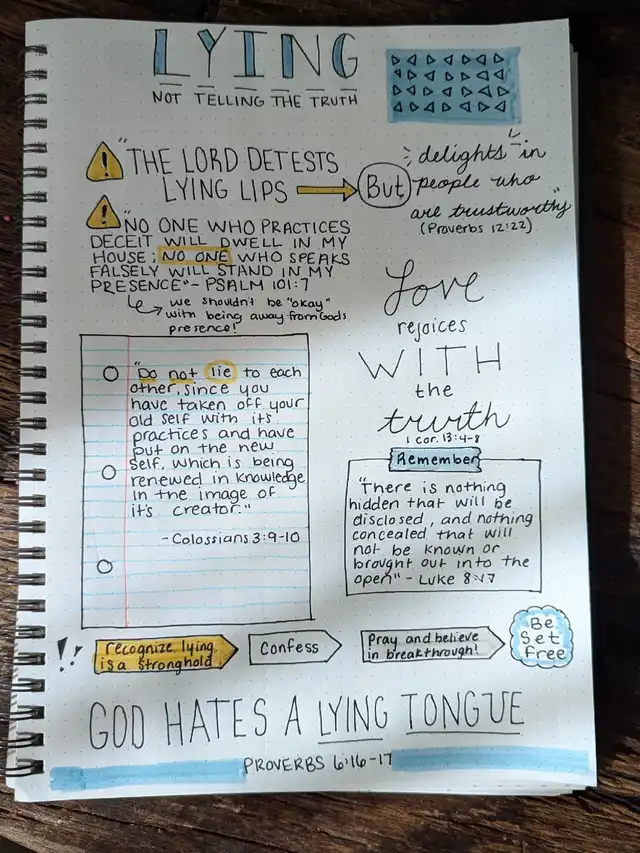 LYING
NOT TELLING THE TRUTH
"THE LORD DETESTS
LYING LIPS
But
delights in
people who
are trustworthy"
(Proverbs 12:22)
"NO ONE WHO PRACTICES
DECEIT WILL DWELL IN MY
HOUSE; NO ONE WHO SPEAKS
FALSELY WILL STAND IN MY
PRESENCE"- PSALM 101:7
we shouldn't be "okay"
with being away from Gods
presence!
"Do not lie to each
other, since you
have taken off your
old self with its
practices and have
put on the new
self, which is being
renewed in knowledge
in the image of
it's creator."
-Colossians 3:9-10
Love
rejoices
WITH
the
truth
1 Cor. 13:4-8
Remember
"There is nothing
hidden that will be
disclosed, and nothing
concealed that will
not be known or
brought out into the
open" - Luke 8:17
!! recognize lying
is a stronghold
Confess
Pray and believe
in breakthrough!
Be
Set
Free
GOD HATES A LYING TONGUE
PROVERBS 6:16-17